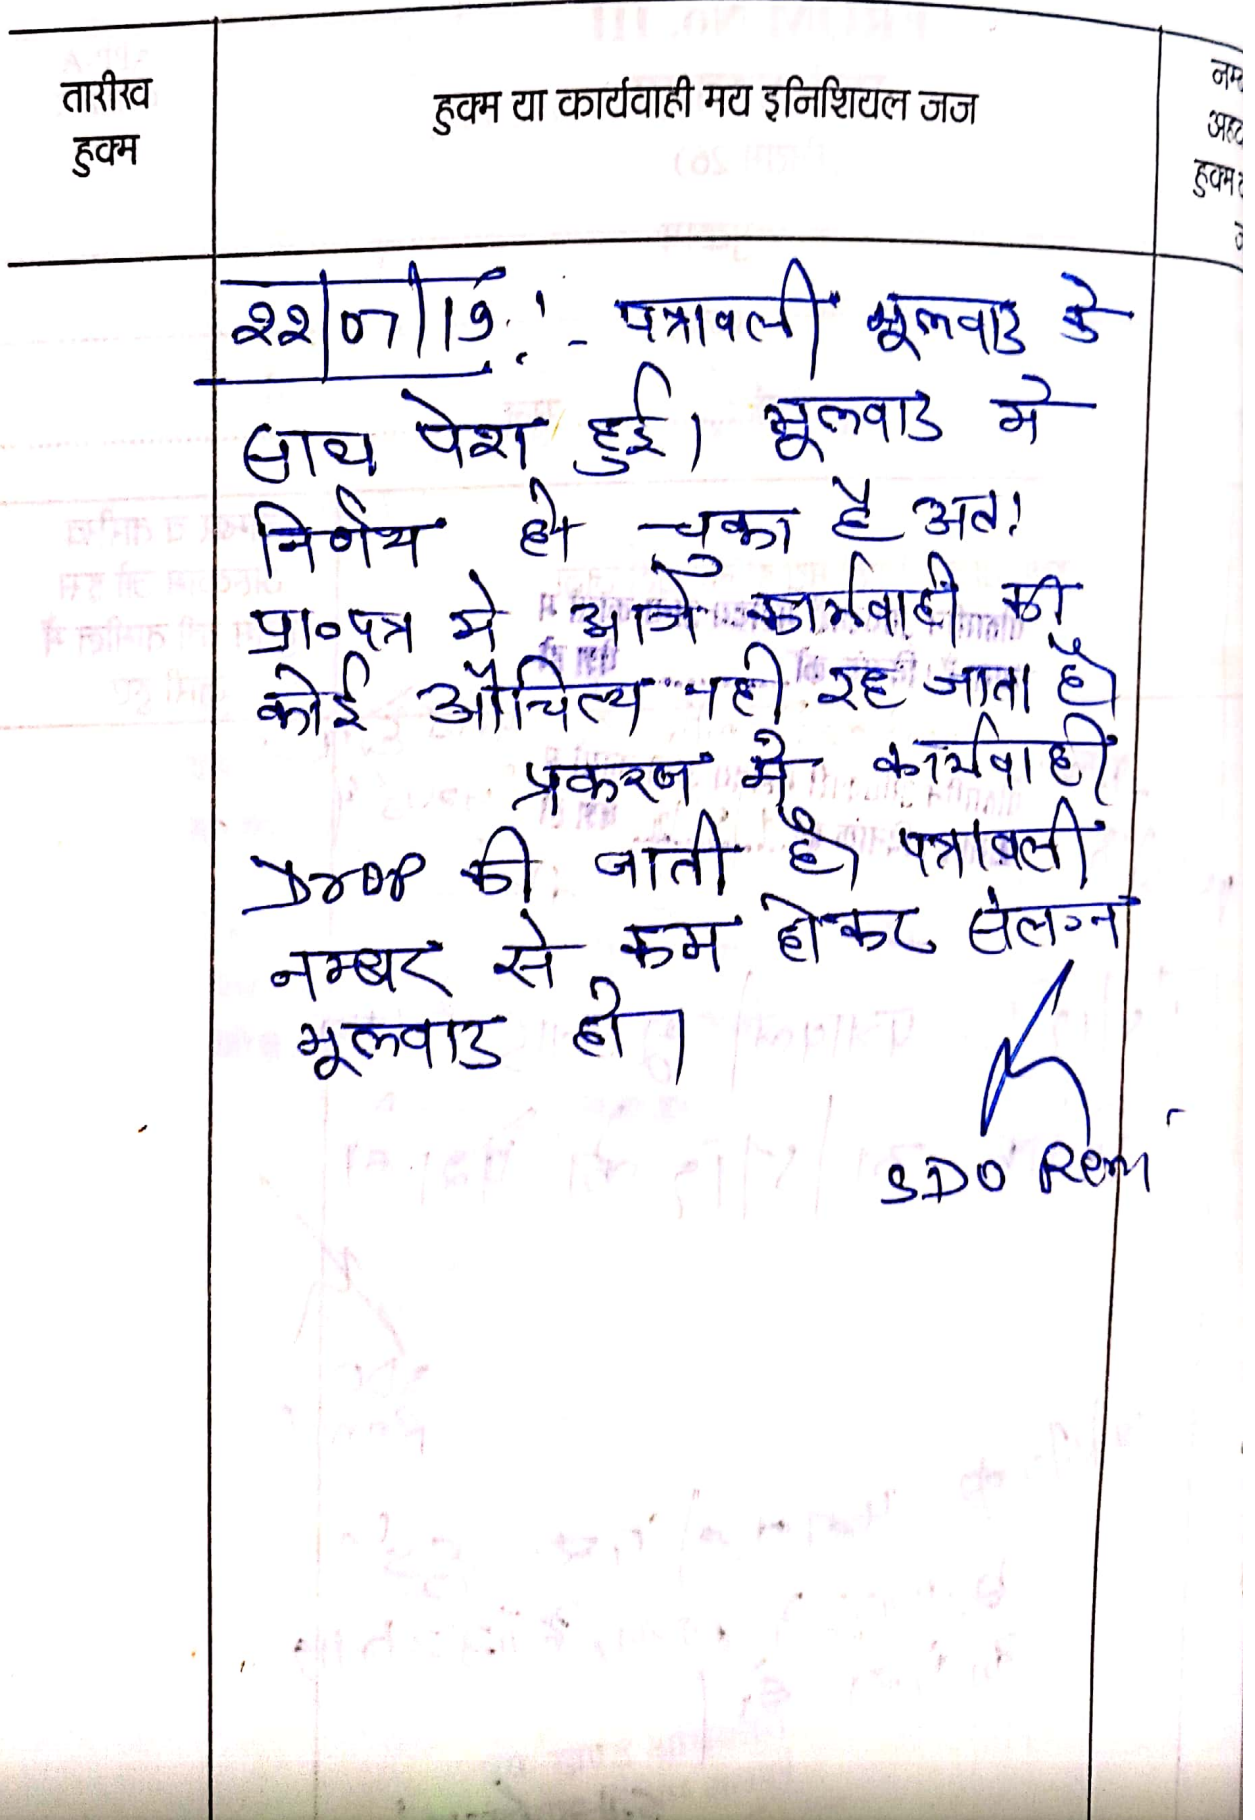 तारीख
हुक्म
हुक्म या कार्यवाही मय इनिशियल जज
22/07/19:- पत्रावली मूलवाद के
साथ पेश हुई। मूलवाद मे
निर्णय हो चुका है अतः
प्रा०पत्र मे आगे कार्यवाही की
कोई औचित्य नही रह जाता है।
प्रकरण मे कार्यवाही
Drop की जाती है। पत्रावली
नम्बर से कम होकर संलग्न
मूलवाद हो।
SDO